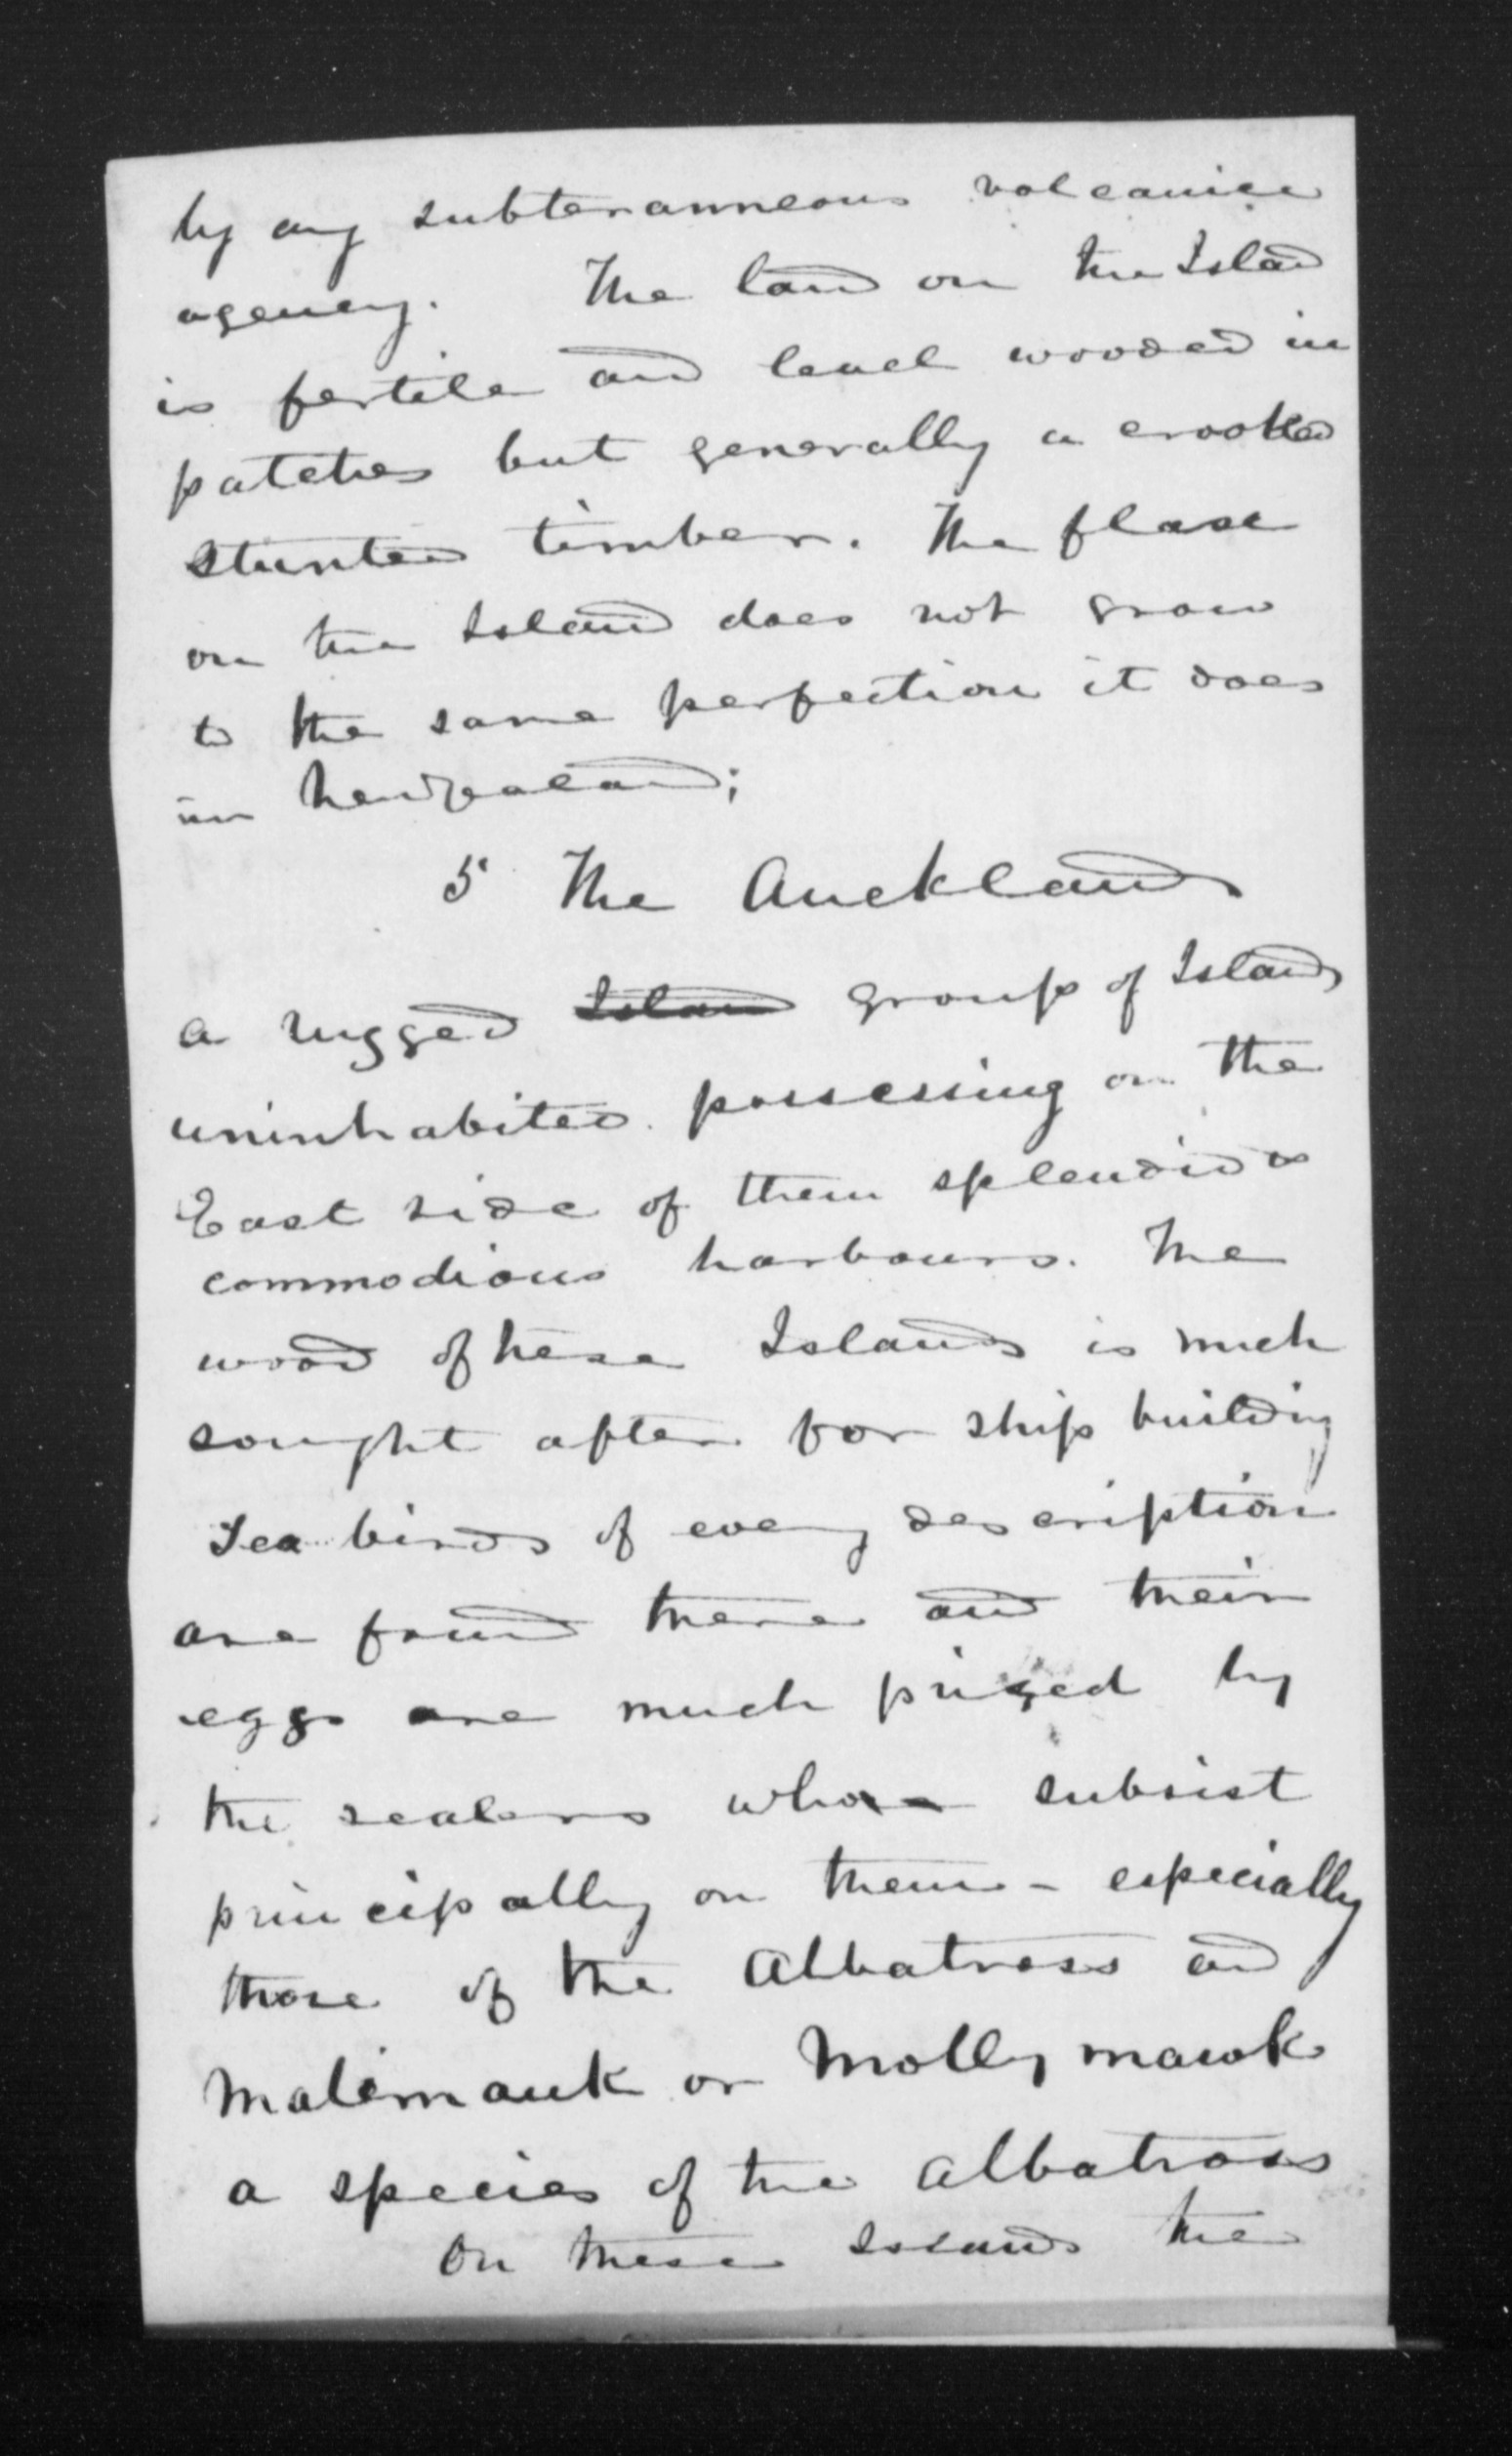 by any subteranneous volcanice
agency. The land on the Island
is fertile and level wooded in
patches but generally a crooked
stunted timber. The flax
on the Island does not grow
to the same perfection it does
in Newzealand;
5 The Aucklands
a rugged Island group of Islands
uninhabited. possessing on the
East side of them splendid &
commodious harbours. The
wood of these Islands is much
sought after for ship building
Sea birds of every description
are found there and their
eggs are much prized by
the sealers who subsist
principally on them - especially
those of the Albatross and
Malimauk or Molly mawk
a species of the albatross
On these Islands the